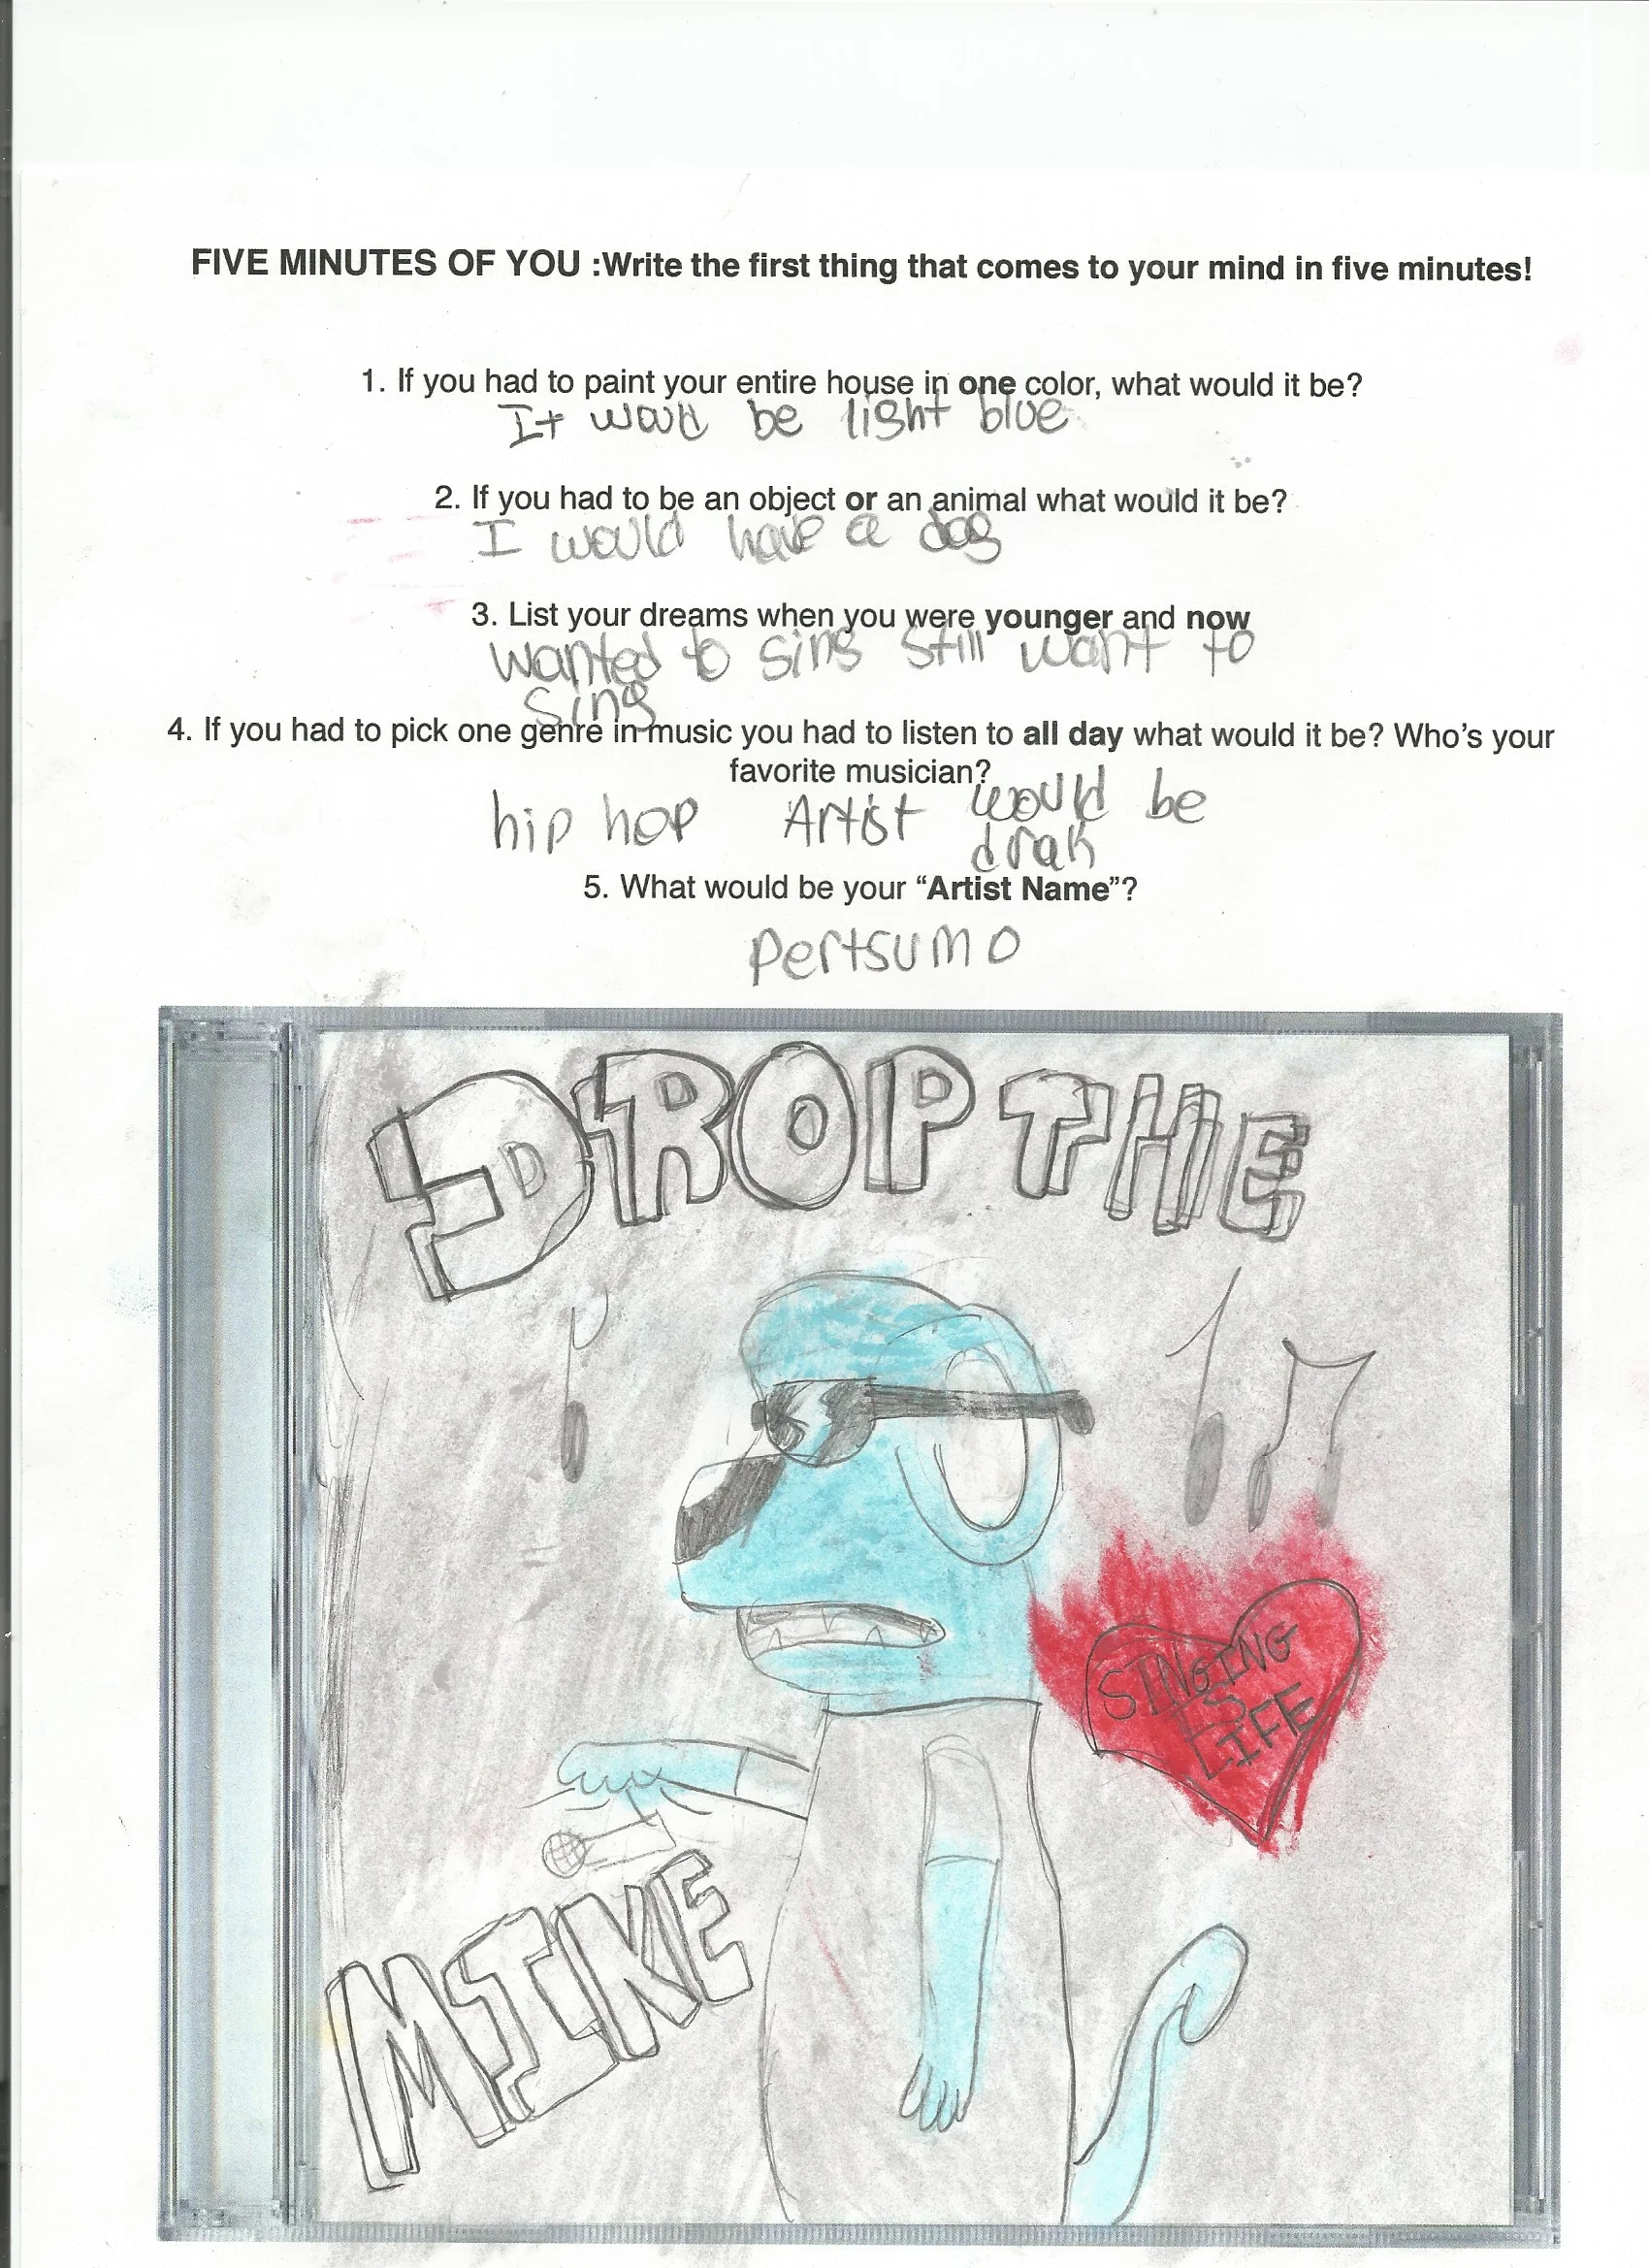 FIVE MINUTES OF YOU :Write the first thing that comes to your mind in five minutes!
1. If you had to paint your entire house in one color, what would it be?
It would be light blue
2. If you had to be an object or an animal what would it be?
I would have a dog
3. List your dreams when you were younger and now
wanted to sing still want to
sing
4. If you had to pick one genre in music you had to listen to all day what would it be? Who's your
favorite musician?
hip hop Artist would be
drak
5. What would be your “Artist Name”?
Pertsumo
DROP THE
SINGING
IS
LIFE
MIKE